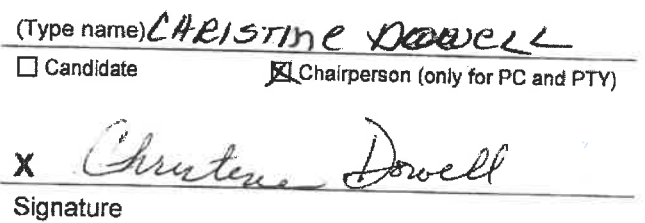 (Type name) CHRISTINE DOWELL
☐ Candidate ☒ Chairperson (only for PC and PTY)
X Christine Dowell
Signature